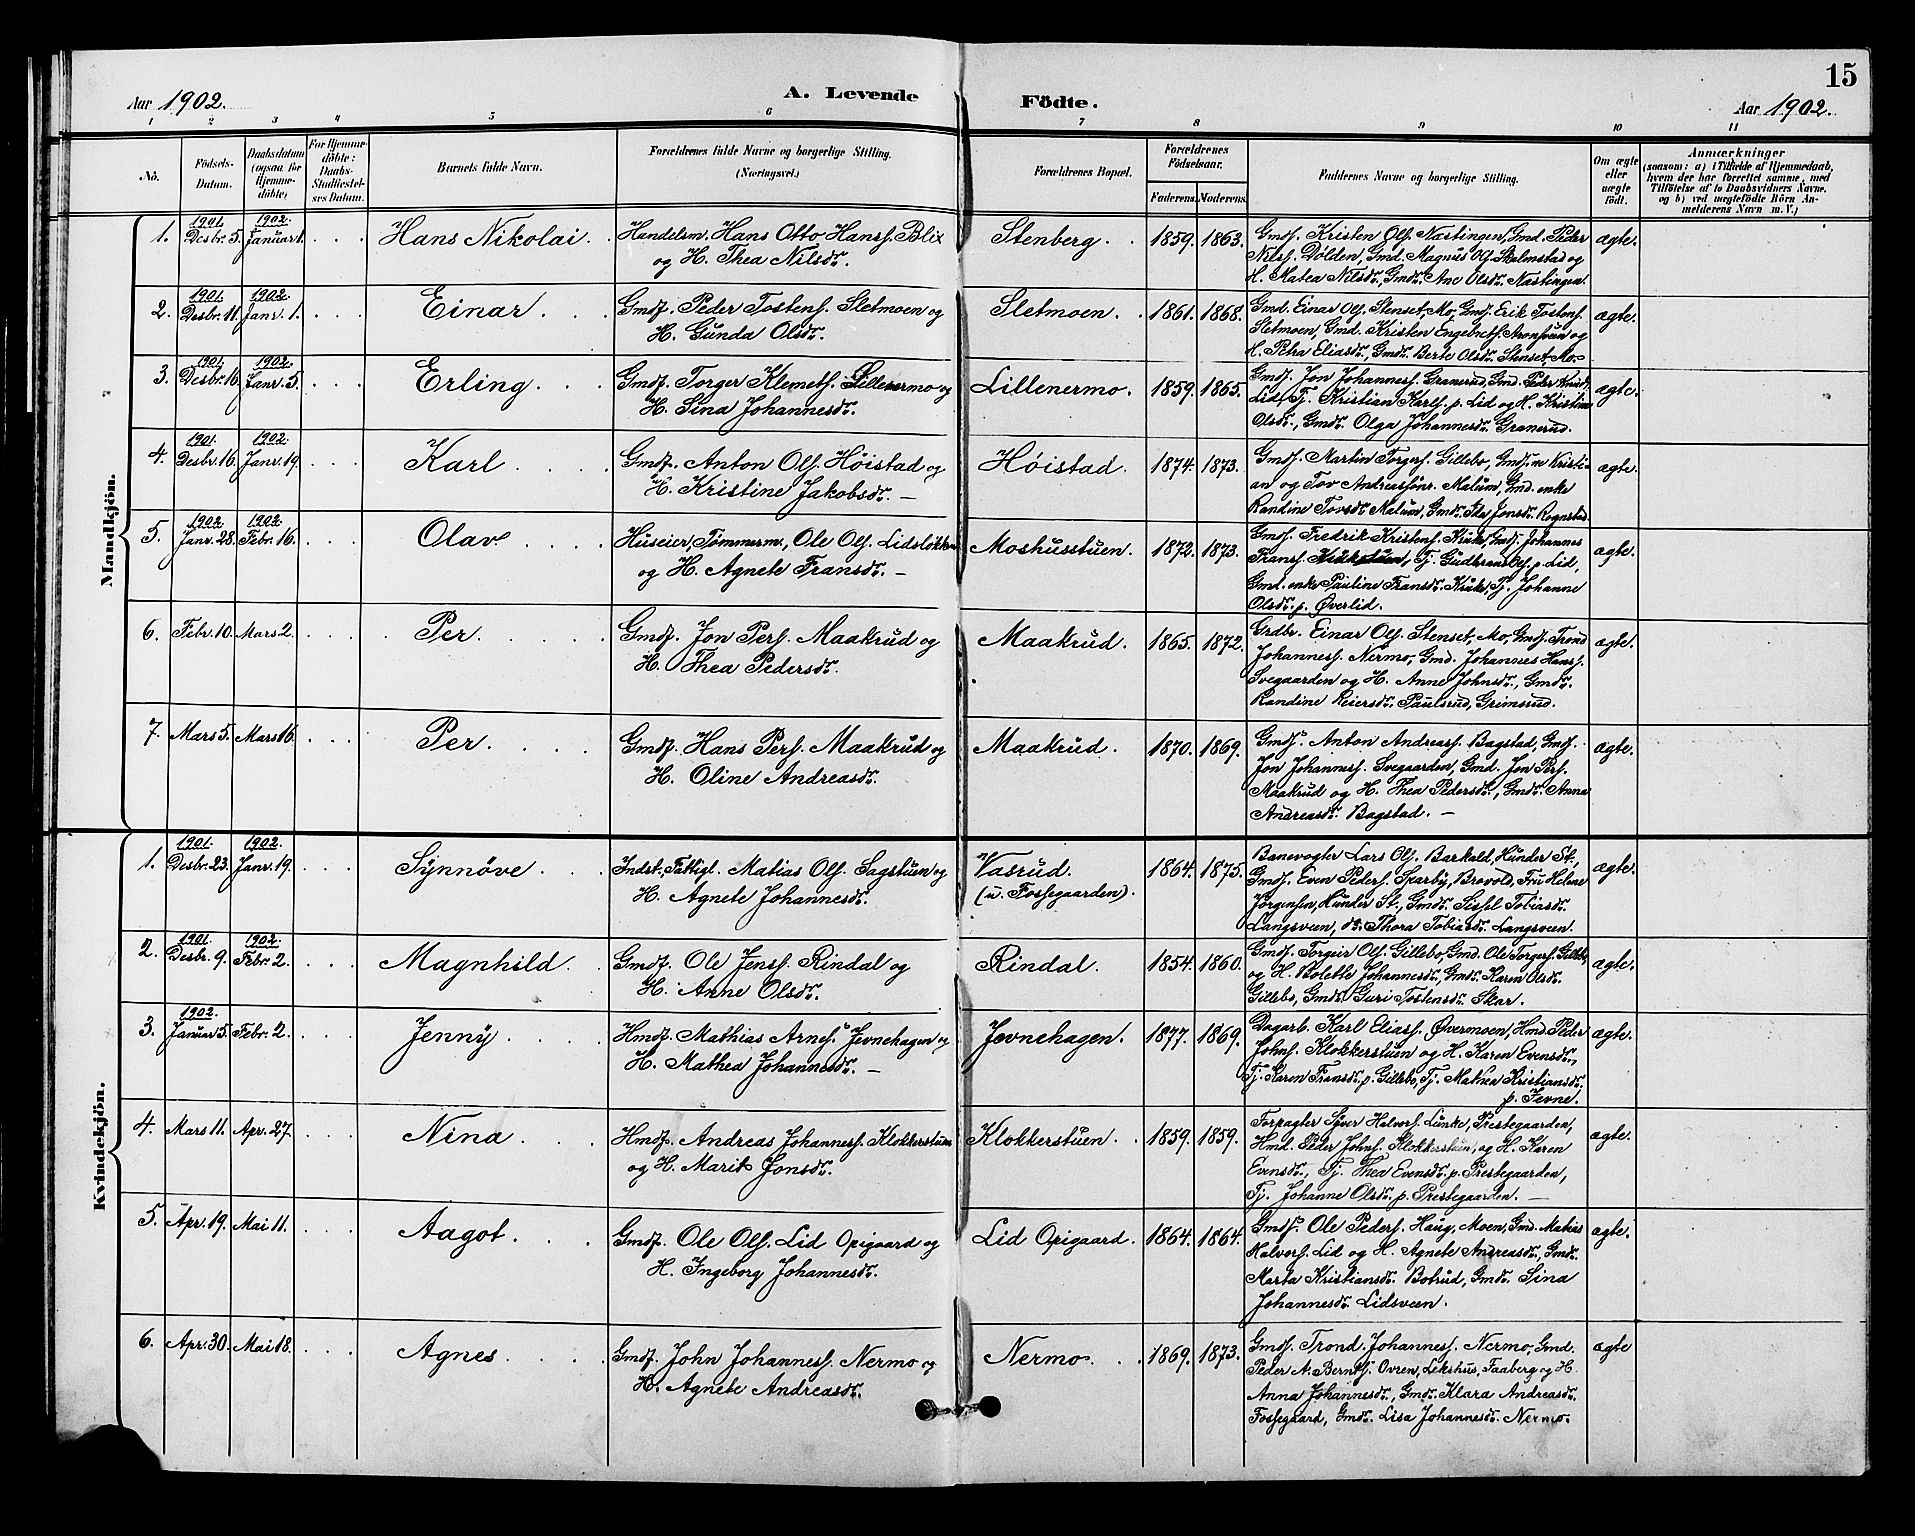 15
Aar 1902. A. Levende Födte. Aar 1902.
1 2 3 4 5 6 7 8 9 10 11
No. Födsels-Datum. Daabsdatum (ogsaa for Hjemmedöbte). For Hjemmedöbte: Daabs-Stadfæstelses Datum. Barnets fulde Navn. Forældrenes fulde Navne og borgerlige Stilling. (Næringsvei.) Forældrenes Bopæl. Forældrenes Födselsaar. Faderens. Moderens. Faddernes Navne og borgerlige Stilling. Om ægte eller uægte födt. Anmærkninger
(saasom: a) i Tilfælde af Hjemmedaab,
hvem der har forrettet samme, med
Tilföielse af to Daabsvidners Navne,
og b) ved uægtefödte Börn An-
melderens Navn m. V.)
Mandkjön.
1. 1901. Desbr. 5. 1902. Januar 1. Hans Nikolai. Handelsm. Hans Otto Hanss. Blix
og H. Thea Nilsdr. Stenberg. 1859. 1863. Gmdf. Kristen Ols. Næstingen, Gmd. Peder
Nilss. Dølden, Gmd. Magnus Skalmstad og
H. Matea Nilsdr., Gmdr. Ane Olsdr. Næstingen. ægte.
2. 1901. Desbr. 11. 1902. Janr. 1. Einar Gmdf. Peder Tostens. Sletmoen og
H. Gunda Olsdr. Sletmoen. 1861. 1868. Gmd. Einar Ols. Stenset, Mo, Gmdf. Erik Tostens.
Sletmoen, Gmd. Kristen Engebrets. og
H. Petra Eliasdr., Gmdr. Berte Olsdr. Stenset, Mo. ægte.
3. 1901. Desbr. 16. 1902. Janr. 5. Erling. Gmdf. Torger Klemets. Lillenermo og
H. Sina Johannesdr. Lillenermo. 1859. 1865. Gmdf. Jon Johanness. Granerud, Gmd. Peder Knuds.
Lid, Tj. Kristian Karls. p. Lid og H. Kristine
Olsdr., Gmdr. Olga Johannesdr. Granerud. ægte.
4. 1901. Desbr. 16. 1902. Janr. 19. Karl Gmdf. Anton Ols. Höistad og
H. Kristine Jakobsdr. — Höistad. 1874. 1873. Gmdf. Martin Torgers. Gillebo, Gmdfne Kristi-
an og Tov Andreassönr. Malum, Gmd. enke
Randine Tovsdr. Malum, Gmdr. Jonsdr. Rognstad. ægte.
5. 1902. Janr. 28. 1902. Febr. 16. Olav Huseier, Tömmerm., Ole Ols. Lidsløkken
og H. Agnete Fransdr. — Moshusstuen. 1872. 1873. Gmdf. Fredrik Kristens. Kruke, Gmdf. Johannes
Franss. Tj. Gudbrand Ols. p. Lid,
Gmd. enke Pauline Fransdr. Kruke, Tj. Johanne
Olsdr. p. Øverlid. ægte.
6. Febr. 10. Mars 2. Per. Gmdf. Jon Pers. Maakrud og
H. Thea Pedersdr. Maakrud. 1865. 1872. Grdbr. Einar Ols. Stenset, Mo, Gmdf. Trond
Johanness. Nermo, Gmd. Johannes Hanss.
Svegaarden og H. Anne Johnsdr., Gmdr.
Randine Reiersdr. Paulsrud, Grimsrud. ægte.
7. Mars 5. Mars 16. Per. Gmdf. Hans Pers. Maakrud og
H. Oline Andreasdr. Maakrud. 1870. 1869. Gmdf. Anton Andreass. Bagstad, Gmdf.
Jon Johanness. Svegaarden, Gmd. Jon Pers.
Maakrud og H. Thea Pedersdr., Gmdr. Anna
Andreasdr. Bagstad. — ægte.
Kvindekjön.
1. 1901. Desbr. 23. 1902. Janr. 19. Synnøve. Indst. Fattigl. Matias Ols. Sagstuen og
H. Agnete Johannesdr. Vasrud.
(u. Fossegaarden). 1864. 1875. Banevogter Lars Ols. Barkald, Hunder St.,
Gmdf. Even Peders. Skarby, Brovold, Fru Helene
Jörgensen, Hunder St., Gmdr. Sissel Tobiasdr.
Langsveen, do. Thora Tobiasdr. Langsveen. ægte.
2. 1901. Desbr. 9. 1902. Febr. 2. Magnhild. Gmdf. Ole Jenss. Rindal og
H. Anne Olsdr. Rindal. 1854. 1860. Gmdf. Torgeir Ols. Gillebo, Gmd. Ole Torgers. Gillebo
og H. Bolette Johannesdr., Gmdr. Karen Olsdr.
Gillebo, Gmdr. Guri Tostensdr. Skar. ægte.
3. 1902. Januar 5. Febr. 2. Jenny. Hmdf. Mathias Arnes. Jevnehagen og
H. Mathea Johannesdr. — Jevnehagen. 1877. 1869. Dagarb. Karl Eliass. Øvermoen, Hmd. Peder
Johns. Klokkerstuen og H. Karen Evensdr.,
Tj. Karen Fransdr. p. Gillebo, Tj. Matea Kristiansdr.
p. Jevne. ægte.
4. Mars 11. Apr. 27. Nina. Hmdf. Andreas Johanness. Klokkerstuen
og H. Marit Jonsdr. Klokkerstuen. 1859. 1859. Forpagter Syver Halvors. Lunke, Prestegaarden,
Hmd. Peder Johns. Klokkerstuen, og H. Karen
Evensdr., Tj. Thea Evensdr. p. Prestegaarden,
Tj. Johanne Olsdr. p. Prestegaarden. — ægte.
5. Apr. 19. Mai 11. Aagot. Gmdf. Ole Ols. Lid Opigaard og
H. Ingeborg Johannesdr. Lid Opigaard. 1864. 1864. Gmdf. Ole Peders. Haug, Moen, Gmd. Matias
Halvors. Lid og H. Agnete Andreasdr., Gmdr.
Marta Kristiansdr. Botrud, Gmdr. Sina
Johannesdr. Lidsveen. ægte.
6. Apr. 30. Mai 18. Agnes. Gmdf. John Johanness. Nermo og
H. Agnete Andreasdr. Nermo. 1869. 1873. Gmdf. Trond Johanness. Nermo, Gmd.
Peder A. Bernts. Ovren, Lekshus, Faaberg og H.
Anna Johannesdr., Gmdr. Klara Andreasdr.
Fossegaard, Gmdr. Lisa Johannesdr. Nermo. ægte